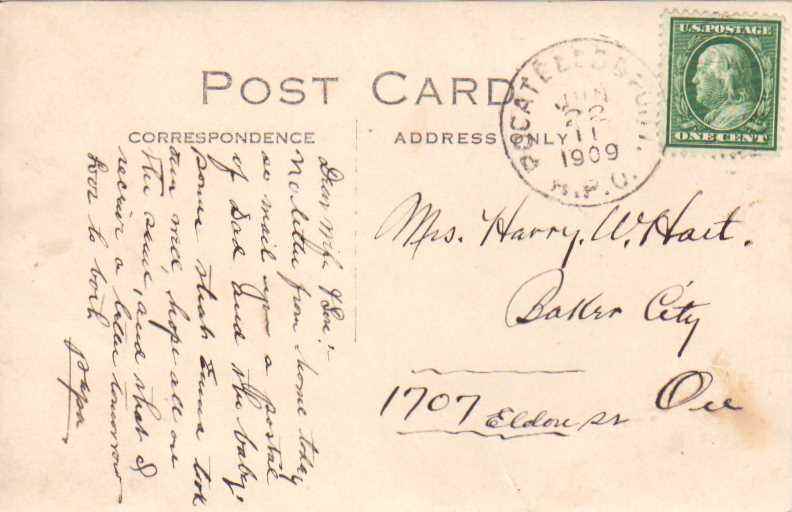 POST CARD
CORRESPONDENCE
ADDRESS ONLY
POCATELLO &
JUN
22
11
1909
R.P.O.
U.S. POSTAGE
ONE CENT
Dear Wife & Son:-
No letter from home today
so mail you a postal
of Dad and the baby.
some that Emma took
am well, hope all are
the same, and that I
receive a letter tomorrow
Love to both
Papa
Mrs. Harry. W. Hart.
Baker City
1707
Ore